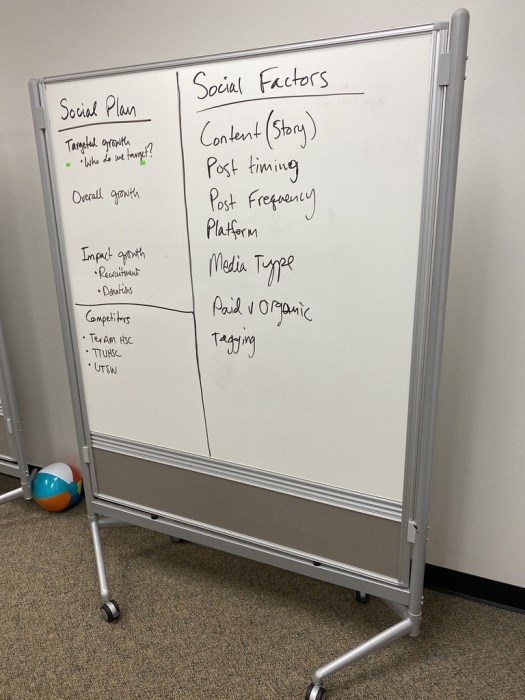 Social Plan
Targeted growth
• Who do we target?
Overall growth
Impact growth
• Recruitment
• Donations
Competitors
• TexAM HSC
• TTUHSC
• UTSW
Social Factors
Content (Story)
Post timing
Post Frequency
Platform
Media Type
Paid v Organic
Tagging